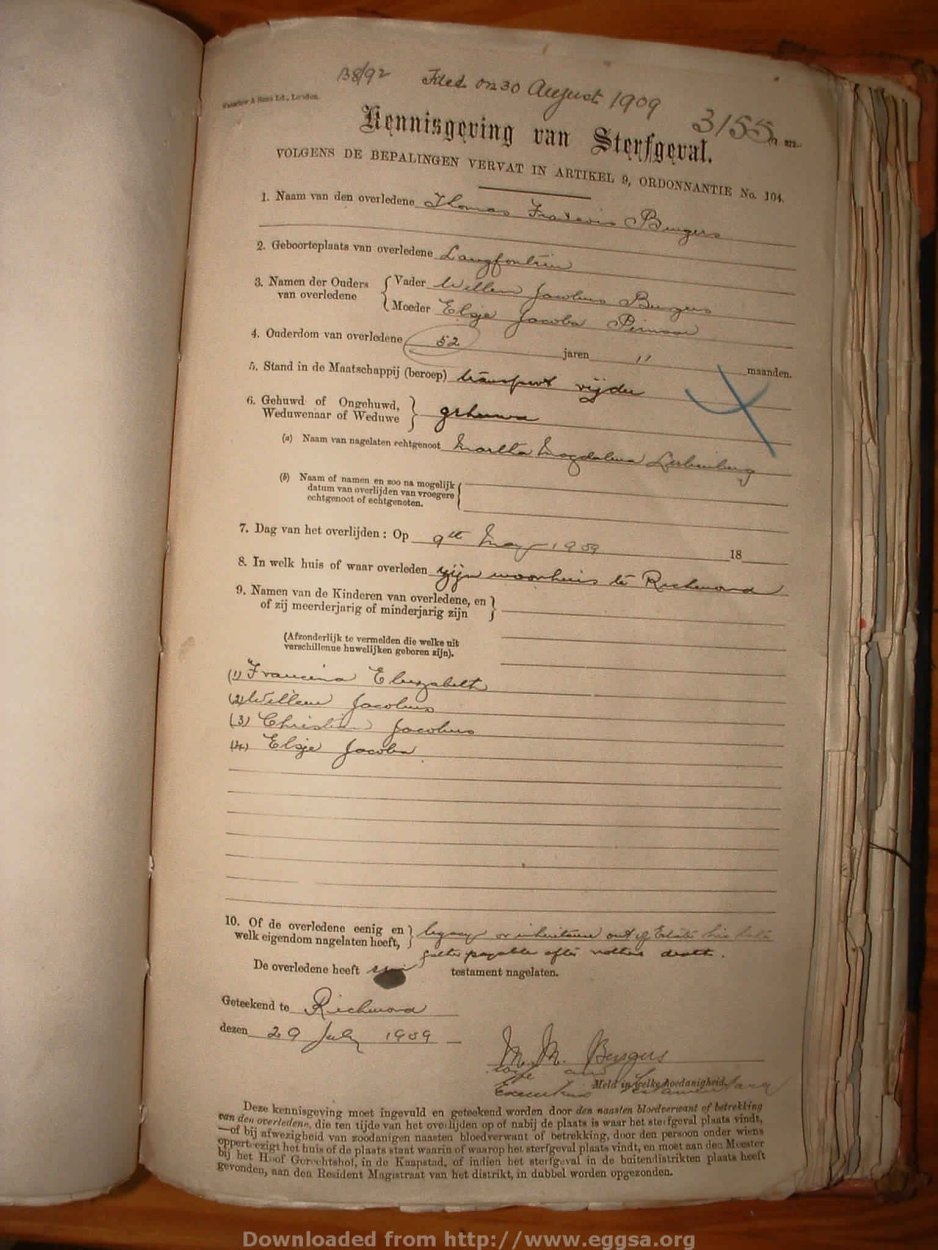 B8/92 Filed on 30 August 1909
3155
Kennisgeving van Sterfgeval.
VOLGENS DE BEPALINGEN VERVAT IN ARTIKEL 9, ORDONNANTIE No. 104.
1. Naam van den overledene Thomas Burgers
2. Geboorteplaats van overledene Langfontein
3. Namen der Ouders van overledene { Vader Willem Jacobus Burgers
Moeder Elsje Jacoba Pienaar
4. Ouderdom van overledene 52 jaren " maanden.
5. Stand in de Maatschappij (beroep) transport rijder
6. Gehuwd of Ongehuwd, Weduwenaar of Weduwe } gehuwd
(a) Naam van nagelaten echtgenoot Martha Magdalena
(b) Naam of namen en zoo na mogelijk
datum van overlijden van vroegere
echtgenoot of echtgenoten.
7. Dag van het overlijden: Op 9th May 1909 18
8. In welk huis of waar overleden zijn woonhuis te Richmond
9. Namen van de Kinderen van overledene, en
of zij meerderjarig of minderjarig zijn
(Afzonderlijk te vermelden die welke uit
verschillende huwelijken geboren zijn).
(1) Francina Elizabeth
(2) Willem Jacobus
(3) Christian Jacobus
(4) Elsje Jacoba
10. Of de overledene eenig en } legacy or inheritance out of Estate his late
welk eigendom nagelaten heeft, } payable after mothers death.
De overledene heeft testament nagelaten.
Geteekend te Richmond
dezen 29 July 1909
M. M. Burgers
Meld in welke hoedanigheid.
Deze kennisgeving moet ingevuld en geteekend worden door den naasten bloedverwant of betrekking
van den overledene, die ten tijde van het overlijden op of nabij de plaats is waar het sterfgeval plaats vindt,
—of bij afwezigheid van zoodanigen naasten bloedverwant of betrekking, door den persoon onder wiens
oppertoezigt het huis of de plaats staat waarin of waarop het sterfgeval plaats vindt, en moet aan den Meester
bij het Hoof Gerechtshof, in de Kaapstad, of indien het sterfgeval in de buitendistrikten plaats heeft
gevonden, aan den Resident Magistraat van het distrikt, in dubbel worden opgezonden.
Downloaded from http://www.eggsa.org